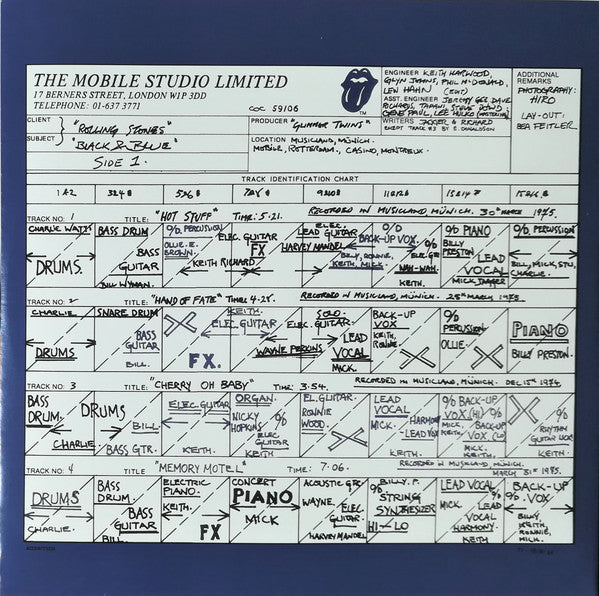 THE MOBILE STUDIO LIMITED
17 BERNERS STREET, LONDON W1P 3DD
TELEPHONE: 01-637 3771
COC 59106
ENGINEER KEITH HARWOOD,
GLYN JOHNS, PHIL McDONALD,
LEW HAHN (EDIT)
ASST. ENGINEER JEREMY GEE DAVE
RICHARDS, TAPANI, STEVE DOWD,
GENE PAUL, LEE HULKO (MASTERING)
WRITERS JAGGER & RICHARD
EXCEPT TRACK #3 BY E. DONALDSON
ADDITIONAL
REMARKS
PHOTOGRAPHY:
HIRO
LAY-OUT:
BEA FEITLER
CLIENT "ROLLING STONES"
SUBJECT "BLACK & BLUE"
SIDE 1.
PRODUCER "GLIMMER TWINS"
LOCATION MUSICLAND, MUNICH.
MOBILE, ROTTERDAM., CASINO, MONTREUX.
TRACK IDENTIFICATION CHART
1 & 2
TRACK NO. 1 TITLE: "HOT STUFF" TIME: 5.21. RECORDED IN MUSICLAND, MÜNICH. 30TH MARCH 1975.
CHARLIE WATTS
DRUMS.
BASS DRUM
BASS
GUITAR
BILL WYMAN.
% PERCUSSION
OLLIE. E.
BROWN.
KEITH RICHARD
ELEC. GUITAR
FX
ELEC.
LEAD GUITAR
HARVEY MANDEL
O/D
BACK-UP VOX.
BILLY, RONNIE,
KEITH. MICK.
%
ELEC GTR
WAH-WAH.
KEITH.
% PIANO
BILLY
PRESTON
LEAD
VOCAL
MICK JAGGER
% PERCUSSION
BILL, MICK, STU,
CHARLIE.
TRACK NO. 2 TITLE: "HAND OF FATE" TIME: 4.28. RECORDED IN MUSICLAND, MÜNICH. 25TH MARCH 1975.
CHARLIE
DRUMS
SNARE DRUM
BASS
GUITAR
BILL.
KEITH.
ELEC. GUITAR
FX.
SOLO.
ELEC. GUITAR.
WAYNE PERKINS
LEAD
VOCAL
MICK.
BACK-UP
VOX
KEITH,
RONNIE
%
PERCUSSION
OLLIE.
PIANO
BILLY PRESTON.
TRACK NO. 3 TITLE: "CHERRY OH BABY" TIME: 3.54. RECORDED IN MUSICLAND, MÜNICH. DEC. 15TH 1974.
BASS
DRUM.
DRUMS
CHARLIE.
BILL.
BASS GTR.
ELEC GUITAR
KEITH.
ORGAN.
NICKY
HOPKINS
%
ELEC
GUITAR
KEITH
EL. GUITAR.
RONNIE
WOOD.
LEAD
VOCAL
MICK.
HARMONY
LEAD VOX
KEITH.
% BACK-UP
VOX.(HI) %
MICK. BACK-UP
KEITH. VOX (LO)
MICK.
KEITH.
%
RHYTHM
GUITAR
KEITH.
TRACK NO. 4 TITLE "MEMORY MOTEL" TIME: 7.06. RECORDED IN MUSICLAND, MÜNICH.
MARCH 31ST 1975.
DRUMS
CHARLIE.
BASS
DRUM.
BASS
GUITAR
BILL.
ELECTRIC
PIANO.
KEITH.
FX
CONCERT
PIANO
MICK
ACOUSTIC GTR
WAYNE.
ELEC.
GUITAR.
HARVEY MANDEL
BILLY. P.
%
STRING
SYNTHESIZER
HI-LO
LEAD VOCAL
MICK.
LEAD
VOCAL
HARMONY.
KEITH
BACK-UP
% VOX.
BILLY,
KEITH,
RONNIE,
MICK.